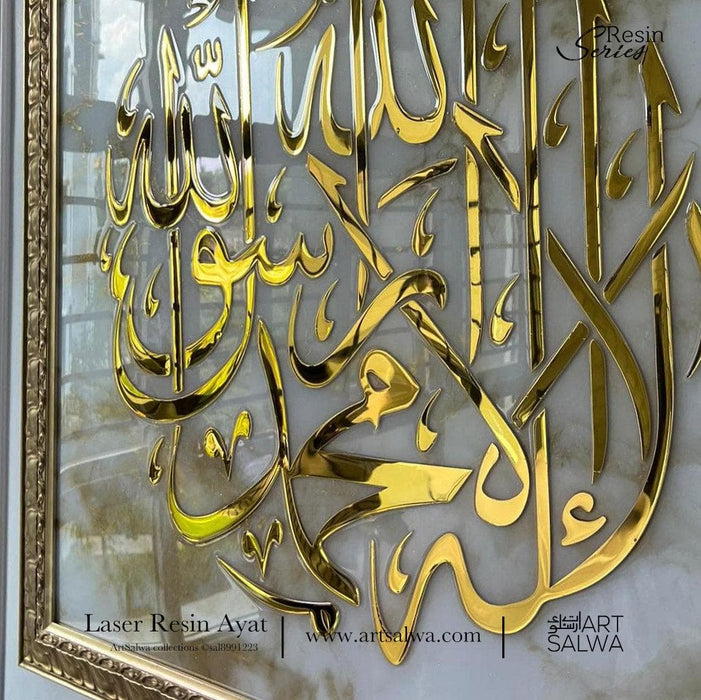 Resin
Series
لا إله إلا الله محمد رسول الله
Laser Resin Ayat
ArtSalwa collections ©sal8991223
www.artsalwa.com
ART
SALWA